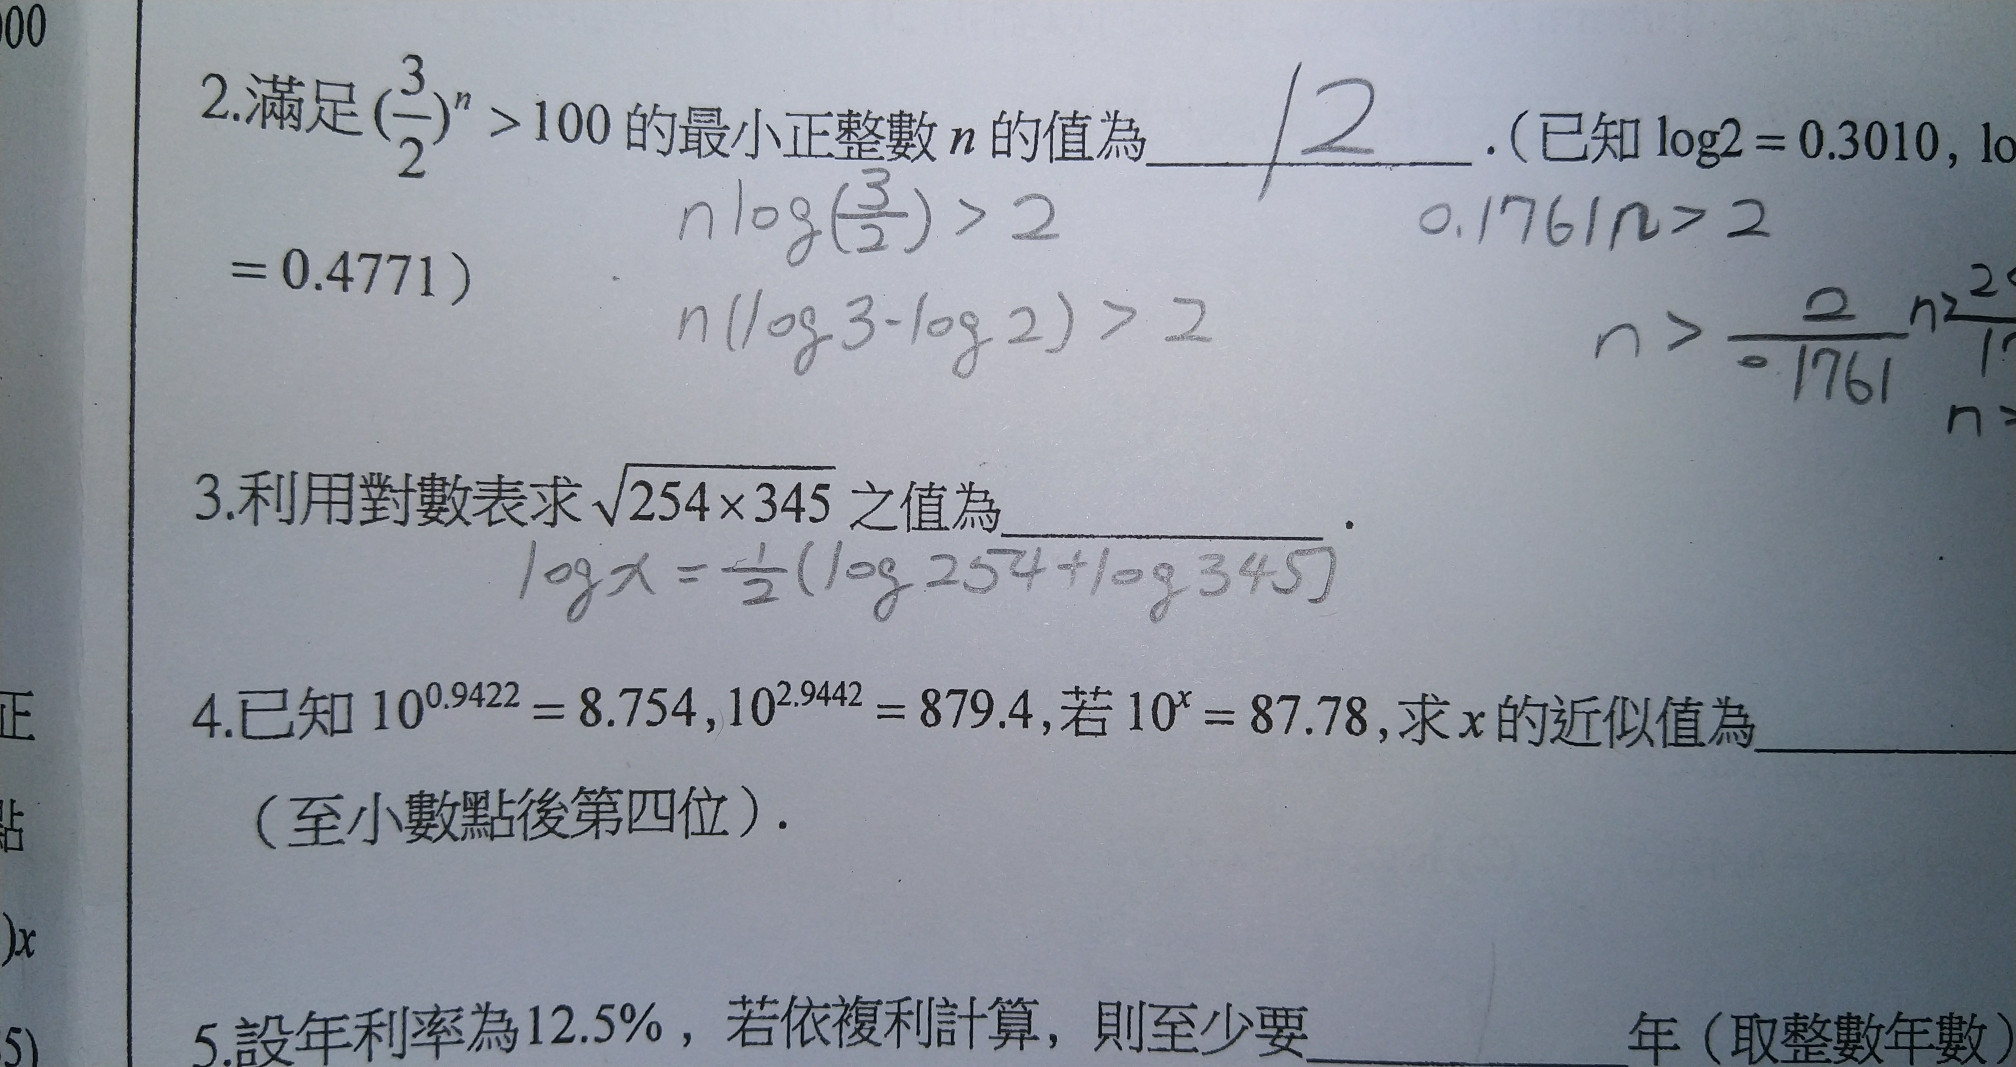 00
2.滿足(3/2)^n >100 的最小正整數 n 的值為 12 .(已知 log2 = 0.3010, lo
n log(3/2) > 2
0.1761n > 2
= 0.4771)
n(log3-log2) > 2
n > 2/0.1761
n>
3.利用對數表求 √254×345 之值為 .
log x = 1/2(log254+log345)
正
4.已知 10^0.9422 = 8.754, 10^2.9442 = 879.4, 若 10^x = 87.78, 求 x 的近似值為
點
(至小數點後第四位).
)x
5)
5.設年利率為12.5%, 若依複利計算, 則至少要 年(取整數年數)